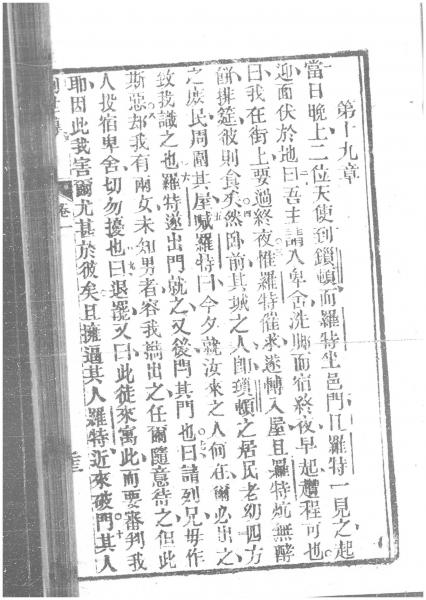 第十九章
當日晚上二位天使到鎖頓而羅特坐邑門口羅特一見之起
迎面伏於地曰吾主請入卑舍洗脚而宿終夜早起趲程可也
曰我在街上要過終夜惟羅特催求遂轉入屋且羅特炕無酵
餅排筵彼則食矣然卧前其城之人即瑣頓之居民老幼四方
之庶民周圍其屋喊羅特曰今夕就汝來之人何在爾必出之
致我識之也羅特遂出門就之又後門其門也曰請列兄毋作
斯惡却我有兩女未知男者容我攜出之任爾隨意待之但此
人投宿卑舍切勿擾也曰退罷又曰此徒來寓此而要審判我
耶因此我害爾尤甚於彼矣且擁逼其人羅特近來破門其人
卷一